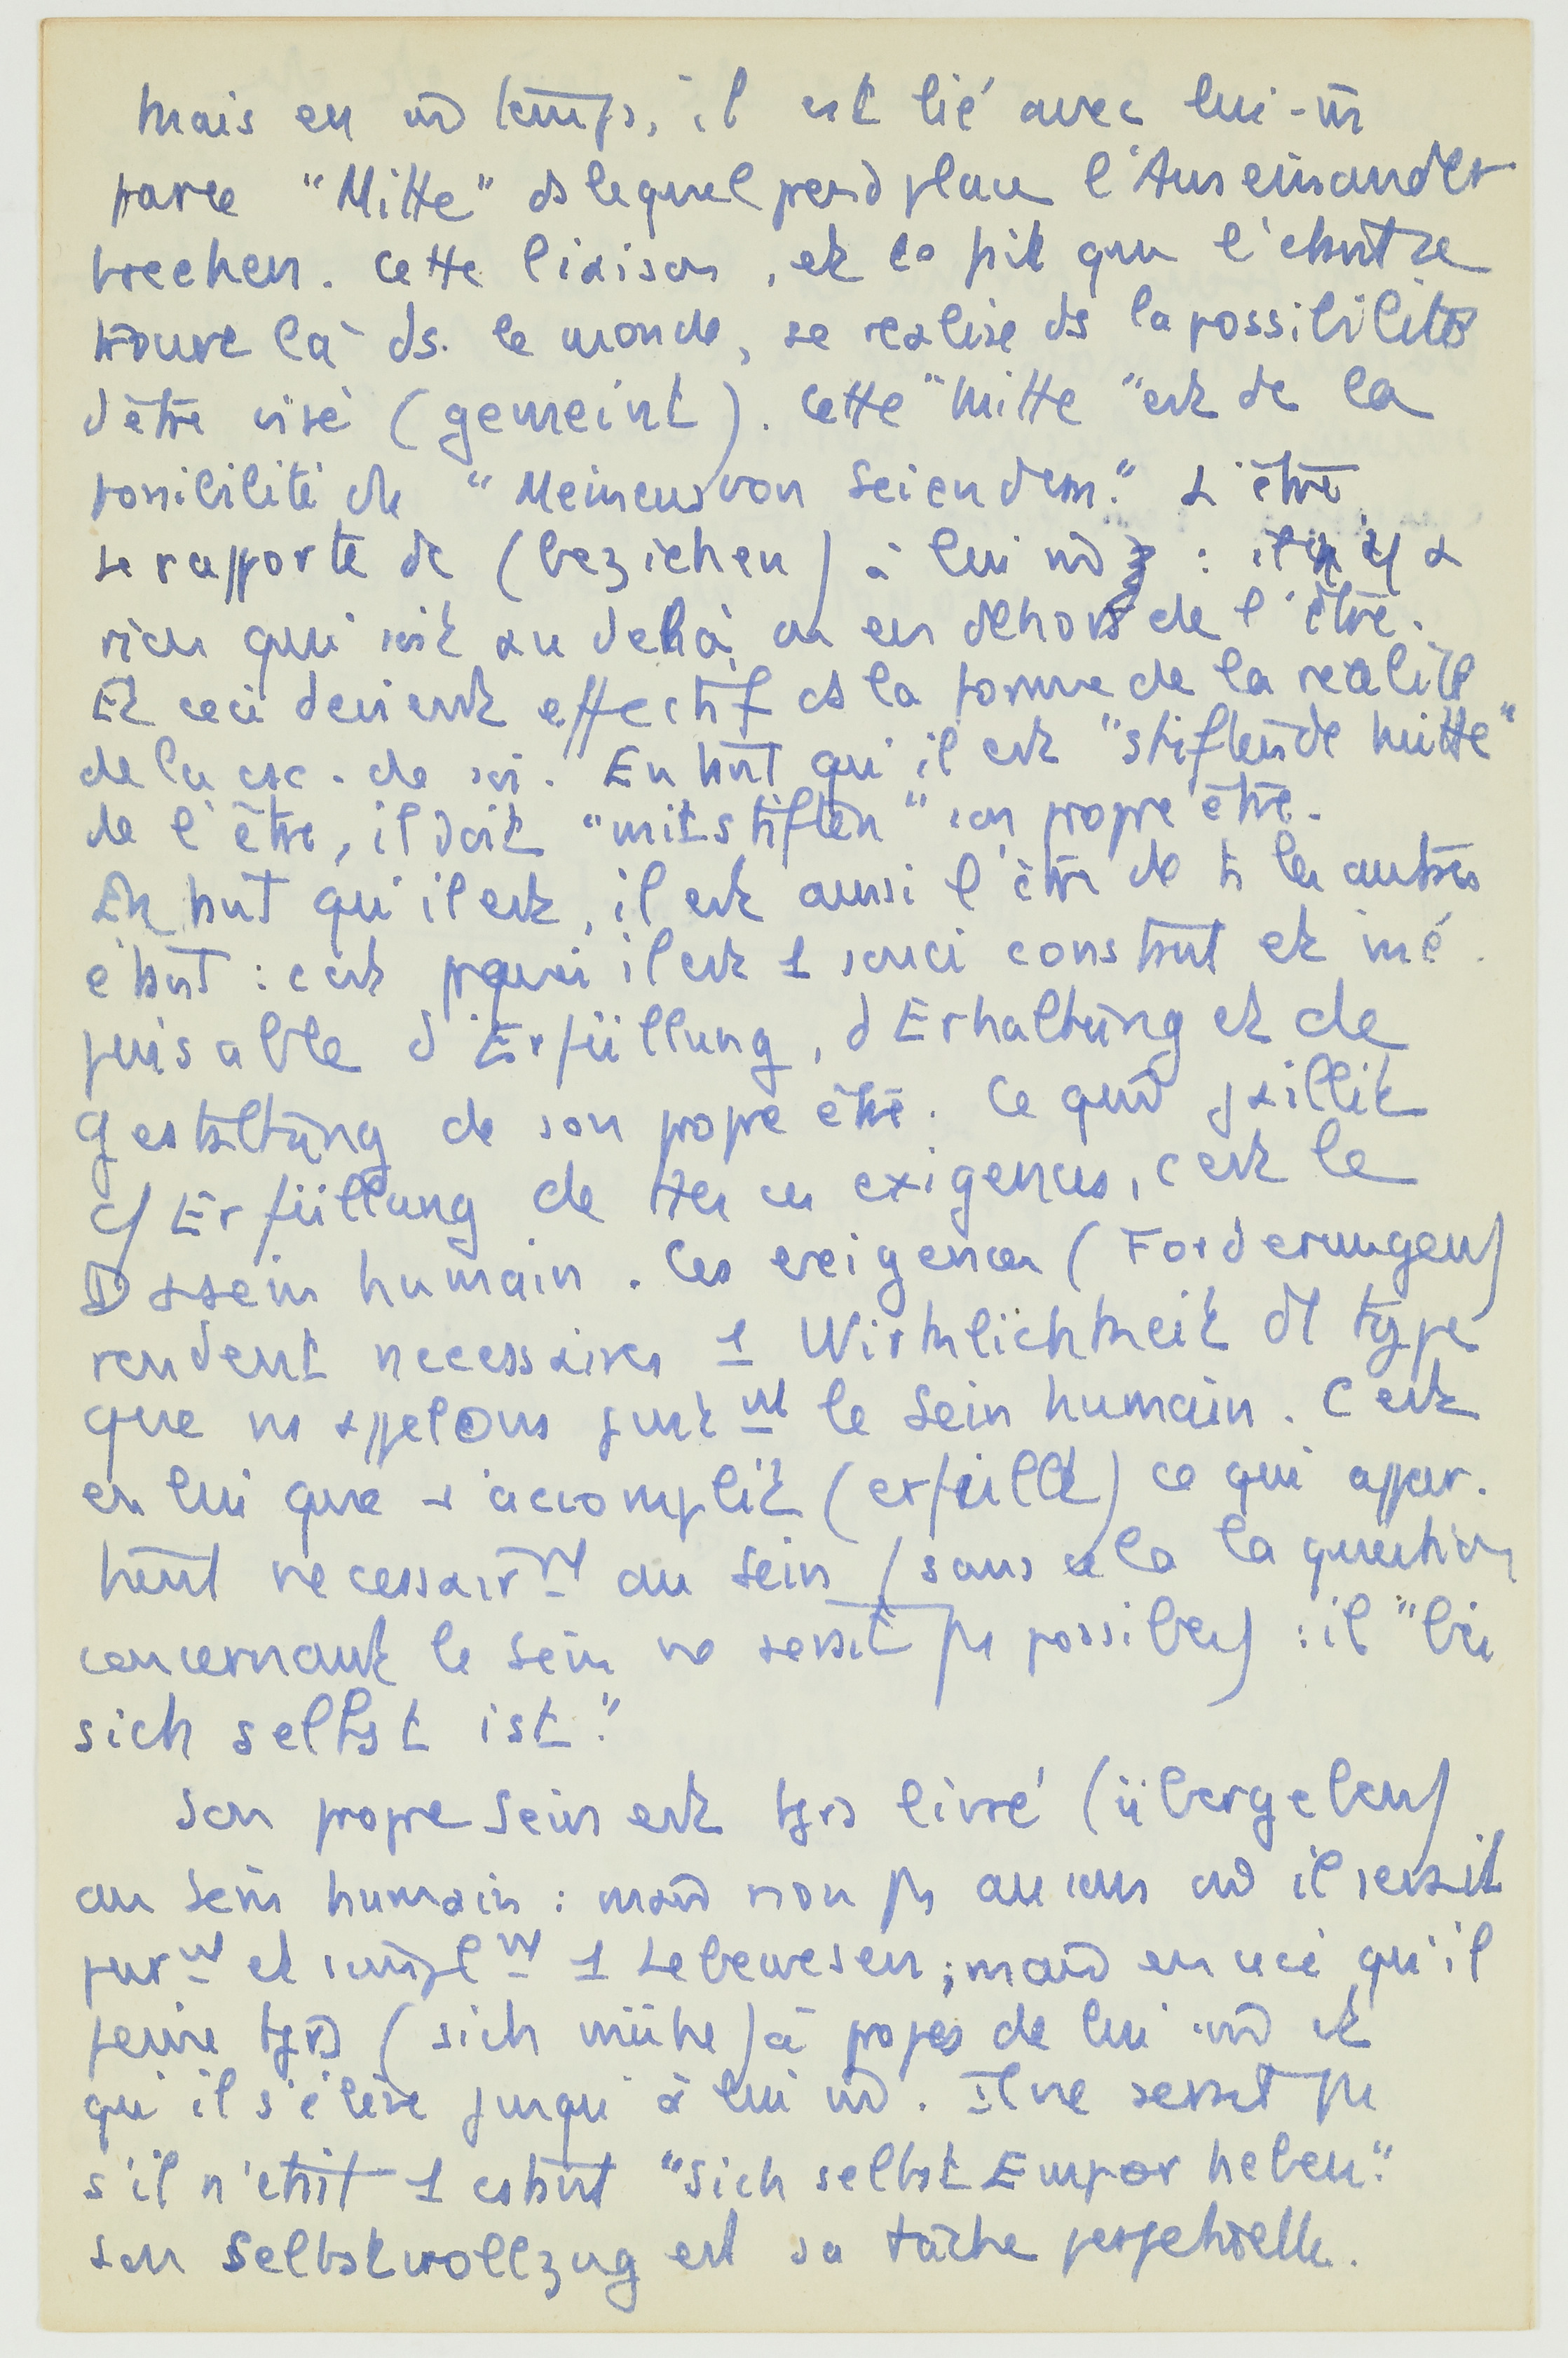 Mais en m̄ temps, il est lié avec lui-m̄
par le "Mitte" ds lequel prend place l'Auseinander
brechen. Cette liaison, et le fait que l'étant se
trouve là ds. le monde, se réalise ds la possibilité
d'être visé (gemeint). Cette "Mitte" est de la
possibilité de "Meinens von Seiendem." L'être
se rapporte de (beziehen) à lui m̄ : il n'y a
rien qui soit au delà ou en dehors de l'être.
Et ceci devient effectif ds la forme de la réalité
de la csc. de soi. En tant qu'il est "stiftende Mitte"
de l'être, il doit "mitstiften" son propre être.
En tant qu'il est, il est aussi l'être de ts les autres
étant : c'est pquoi il est 1 souci constant et iné
puisable d'Erfüllung, d'Erhaltung et de
Gestaltung de son propre être. Ce qui jaillit
c/ Erfüllung de ttes ces exigences, c'est le
Dasein humain. Ces exigences (Forderungen)
rendent nécessaires 1 Wirklichkeit dt type
que ns appelons just nt le Sein humain. C'est
en lui que s'accomplit (erfüllt) ce qui appar-
tient nécessair nt au Sein (sans cela la question
concernant le Sein ne serait ps possible) : il "bei
sich selbst ist."
Son propre Sein est tjrs livré (übergeben)
au Sein humain : mais non ps au sens où il serait
pur nt et simpl nt 1 Lebewesen ; mais en ceci qu'il
peine tjrs (sich mühe) à propos de lui-m̄ et
qu'il s'élève jusqu'à lui m̄. Il ne serait ps
s'il n'était 1 cstant "sich selbst Emporheben."
Son Selbstvollzug est sa tâche perpétuelle.